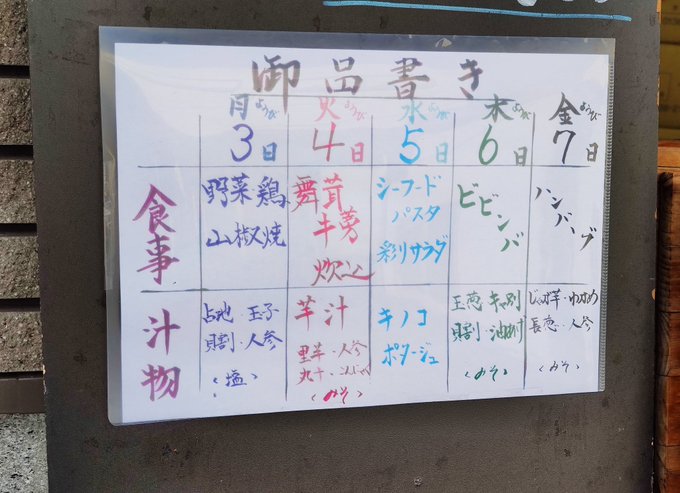 御品書き
月ようび 火ようび 水ようび 木ようび 金ようび
3日 4日 5日 6日 7日
食事
野菜・鶏
山椒焼
舞茸
牛蒡
炊込
シーフード
パスタ
彩りサラダ
ビビンバ
ハンバーグ
汁物
占地・玉子
貝割・人参
<塩>
芋汁
里芋・人参
丸十・こんにゃく
<みそ>
キノコ
ポタージュ
玉葱・キャベツ
貝割・油あげ
<みそ>
じゃが芋・わかめ
長葱・人参
<みそ>